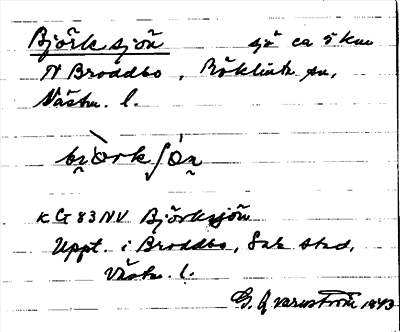 Björksjön sjö ca 5 km
N Broddbo, Röklinta sn,
Västm. l.
bi̯òrkʃón̥
KG 83 NV Björksjön
Uppt. i Broddbo, Sala stad,
Västm. l.
G. Qvarnström, 1943